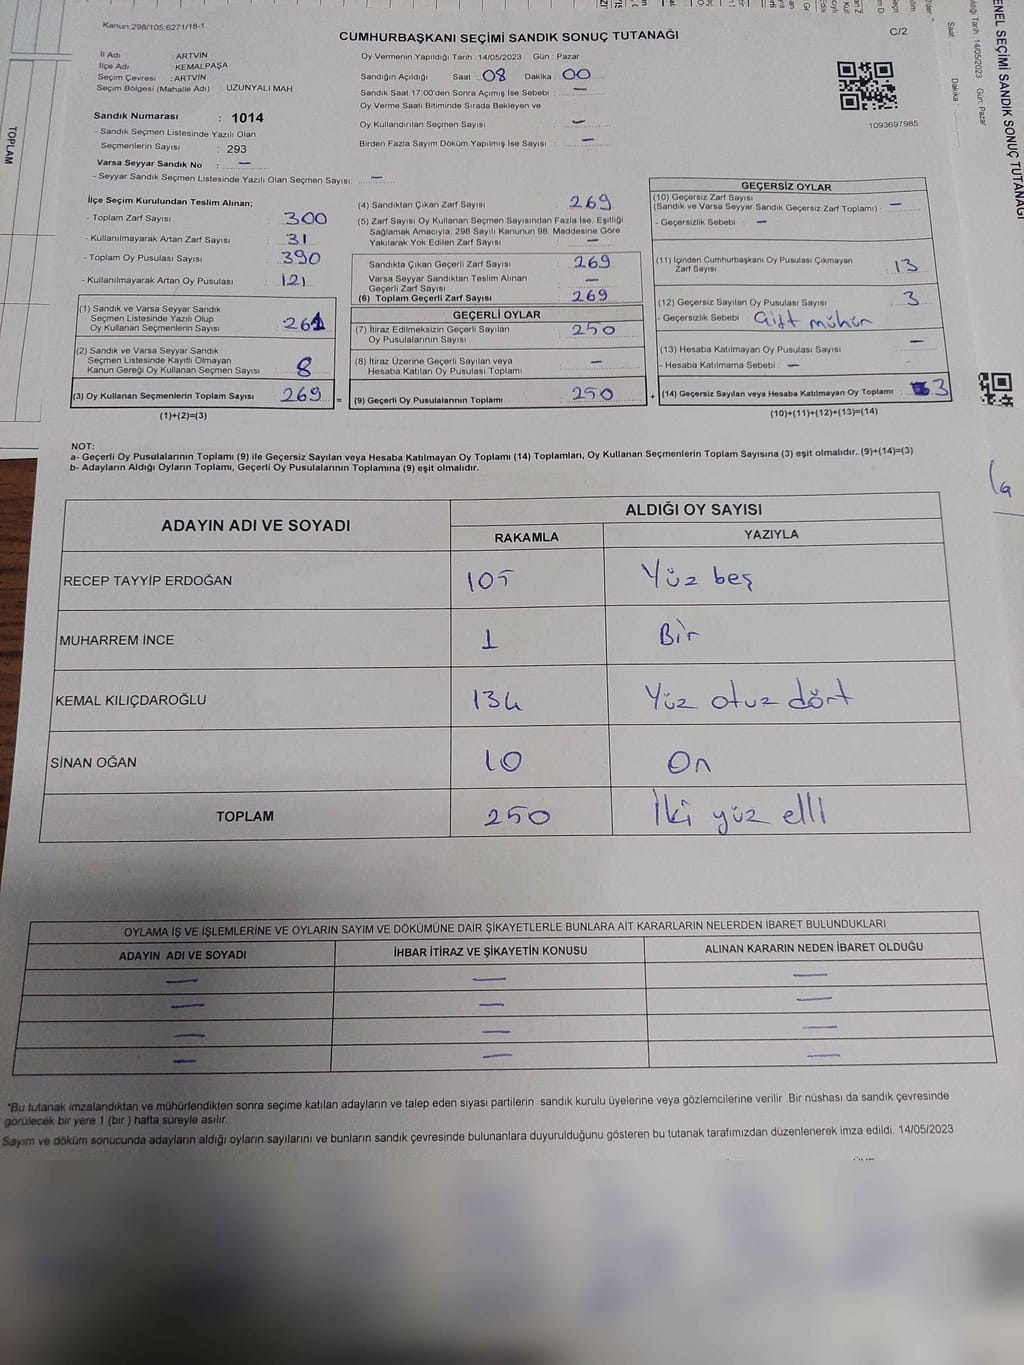 Kanun:298/105;6271/18-1
CUMHURBAŞKANI SEÇİMİ SANDIK SONUÇ TUTANAĞI
C/2
İl Adı : ARTVİN
İlçe Adı : KEMALPAŞA
Seçim Çevresi : ARTVİN
Seçim Bölgesi (Mahalle Adı) : UZUNYALI MAH.
Sandık Numarası : 1014
- Sandık Seçmen Listesinde Yazılı Olan
Seçmenlerin Sayısı : 293
Varsa Seyyar Sandık No : —
- Seyyar Sandık Seçmen Listesinde Yazılı Olan Seçmen Sayısı: —
Oy Vermenin Yapıldığı Tarih : 14/05/2023 Gün : Pazar
Sandığın Açıldığı Saat 08 Dakika 00
Sandık Saat 17:00'den Sonra Açımış İse Sebebi : —
Oy Verme Saati Bitiminde Sırada Bekleyen ve
Oy Kullandırılan Seçmen Sayısı : —
Birden Fazla Sayım Döküm Yapılmış İse Sayısı : —
1093697985
İlçe Seçim Kurulundan Teslim Alınan;
- Toplam Zarf Sayısı : 300
- Kullanılmayarak Artan Zarf Sayısı : 31
- Toplam Oy Pusulası Sayısı : 390
- Kullanılmayarak Artan Oy Pusulası : 121
(1) Sandık ve Varsa Seyyar Sandık
Seçmen Listesinde Yazılı Olup
Oy Kullanan Seçmenlerin Sayısı : 261
(2) Sandık ve Varsa Seyyar Sandık
Seçmen Listesinde Kayıtlı Olmayan
Kanun Gereği Oy Kullanan Seçmen Sayısı : 8
(3) Oy Kullanan Seçmenlerin Toplam Sayısı : 269 =
(1)+(2)=(3)
(4) Sandıktan Çıkan Zarf Sayısı : 269
(5) Zarf Sayısı Oy Kullanan Seçmen Sayısından Fazla İse, Eşitliği
Sağlamak Amacıyla; 298 Sayılı Kanunun 98. Maddesine Göre
Yakılarak Yok Edilen Zarf Sayısı : —
Sandıkta Çıkan Geçerli Zarf Sayısı : 269
Varsa Seyyar Sandıktan Teslim Alınan
Geçerli Zarf Sayısı : —
(6) Toplam Geçerli Zarf Sayısı : 269
GEÇERLİ OYLAR
(7) İtiraz Edilmeksizin Geçerli Sayılan
Oy Pusulalarının Sayısı : 250
(8) İtiraz Üzerine Geçerli Sayılan veya
Hesaba Katılan Oy Pusulası Toplamı : —
(9) Geçerli Oy Pusulalarının Toplamı : 250 +
GEÇERSİZ OYLAR
(10) Geçersiz Zarf Sayısı
(Sandık ve Varsa Seyyar Sandık Geçersiz Zarf Toplamı) : —
- Geçersizlik Sebebi : —
(11) İçinden Cumhurbaşkanı Oy Pusulası Çıkmayan
Zarf Sayısı : 13
(12) Geçersiz Sayılan Oy Pusulası Sayısı : 3
- Geçersizlik Sebebi : Çift mühür
(13) Hesaba Katılmayan Oy Pusulası Sayısı : —
- Hesaba Katılmama Sebebi : —
(14) Geçersiz Sayılan veya Hesaba Katılmayan Oy Toplamı : 3
(10)+(11)+(12)+(13)=(14)
NOT:
a- Geçerli Oy Pusulalarının Toplamı (9) ile Geçersiz Sayılan veya Hesaba Katılmayan Oy Toplamı (14) Toplamları, Oy Kullanan Seçmenlerin Toplam Sayısına (3) eşit olmalıdır. (9)+(14)=(3)
b- Adayların Aldığı Oyların Toplamı, Geçerli Oy Pusulalarının Toplamına (9) eşit olmalıdır.
ADAYIN ADI VE SOYADI
ALDIĞI OY SAYISI
RAKAMLA YAZIYLA
RECEP TAYYİP ERDOĞAN 105 Yüz beş
MUHARREM İNCE 1 Bir
KEMAL KILIÇDAROĞLU 134 Yüz otuz dört
SİNAN OĞAN 10 On
TOPLAM 250 İki yüz elli
OYLAMA İŞ VE İŞLEMLERİNE VE OYLARIN SAYIM VE DÖKÜMÜNE DAİR ŞİKAYETLERLE BUNLARA AİT KARARLARIN NELERDEN İBARET BULUNDUKLARI
ADAYIN ADI VE SOYADI İHBAR İTİRAZ VE ŞİKAYETİN KONUSU ALINAN KARARIN NEDEN İBARET OLDUĞU
— — —
— — —
— — —
— — —
*Bu tutanak imzalandıktan ve mühürlendikten sonra seçime katılan adayların ve talep eden siyasi partilerin sandık kurulu üyelerine veya gözlemcilerine verilir .Bir nüshası da sandık çevresinde
görülecek bir yere 1 (bir ) hafta süreyle asılır.
Sayım ve döküm sonucunda adayların aldığı oyların sayılarını ve bunların sandık çevresinde bulunanlara duyurulduğunu gösteren bu tutanak tarafımızdan düzenlenerek imza edildi. 14/05/2023
TOPLAM
ENEL SEÇİMİ SANDIK SONUÇ TUTANAĞI
Tarih :14/05/2023 Gün: Pazar
Saat:
Dakika: